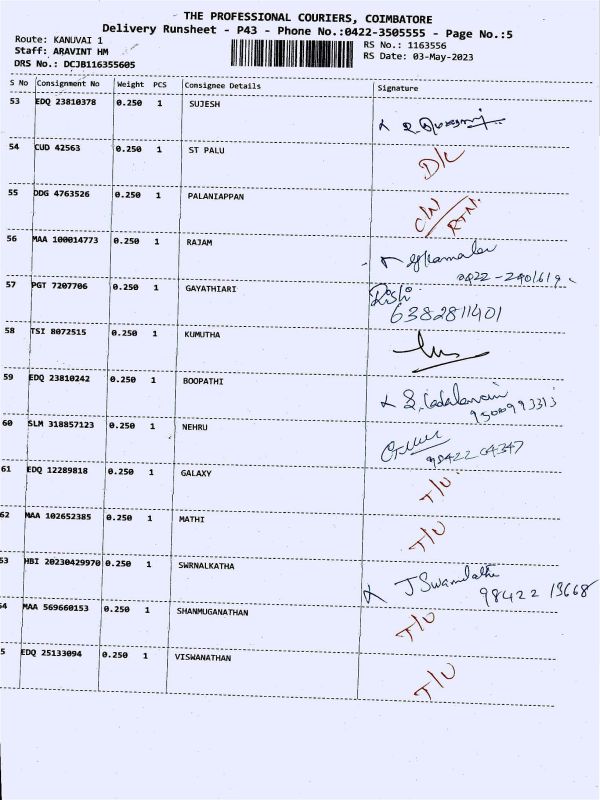 THE PROFESSIONAL COURIERS, COIMBATORE
Delivery Runsheet - P43 - Phone No.:0422-3505555 - Page No.:5
Route: KANUVAI 1
RS No.: 1163556
Staff: ARAVINT HM
RS Date: 03-May-2023
DRS No.: DCJB116355605
S No Consignment No Weight PCS Consignee Details Signature
53 EDQ 23810378 0.250 1 SUJESH
54 CUD 42563 0.250 1 ST PALU D/L
55 DDG 4763526 0.250 1 PALANIAPPAN C/N/RTN.
56 MAA 100014773 0.250 1 RAJAM
0422-2401619
57 PGT 7207706 0.250 1 GAYATHIARI Rishi
6382811401
58 TSI 8072515 0.250 1 KUMUTHA
59 EDQ 23810242 0.250 1 BOOPATHI
60 SLM 318857123 0.250 1 NEHRU
98422 04347
61 EDQ 12289818 0.250 1 GALAXY T/U
62 MAA 102652385 0.250 1 MATHI T/U
53 HBI 20230429970 0.250 1 SWRNALKATHA J Swarnalatha
98422 13668
54 MAA 569660153 0.250 1 SHANMUGANATHAN T/U
5 EDQ 25133094 0.250 1 VISWANATHAN T/U